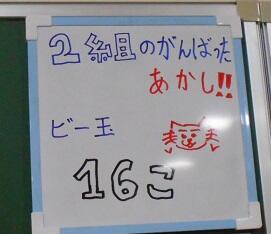 2組のがんばった
あかし!!
ビー玉
16こ